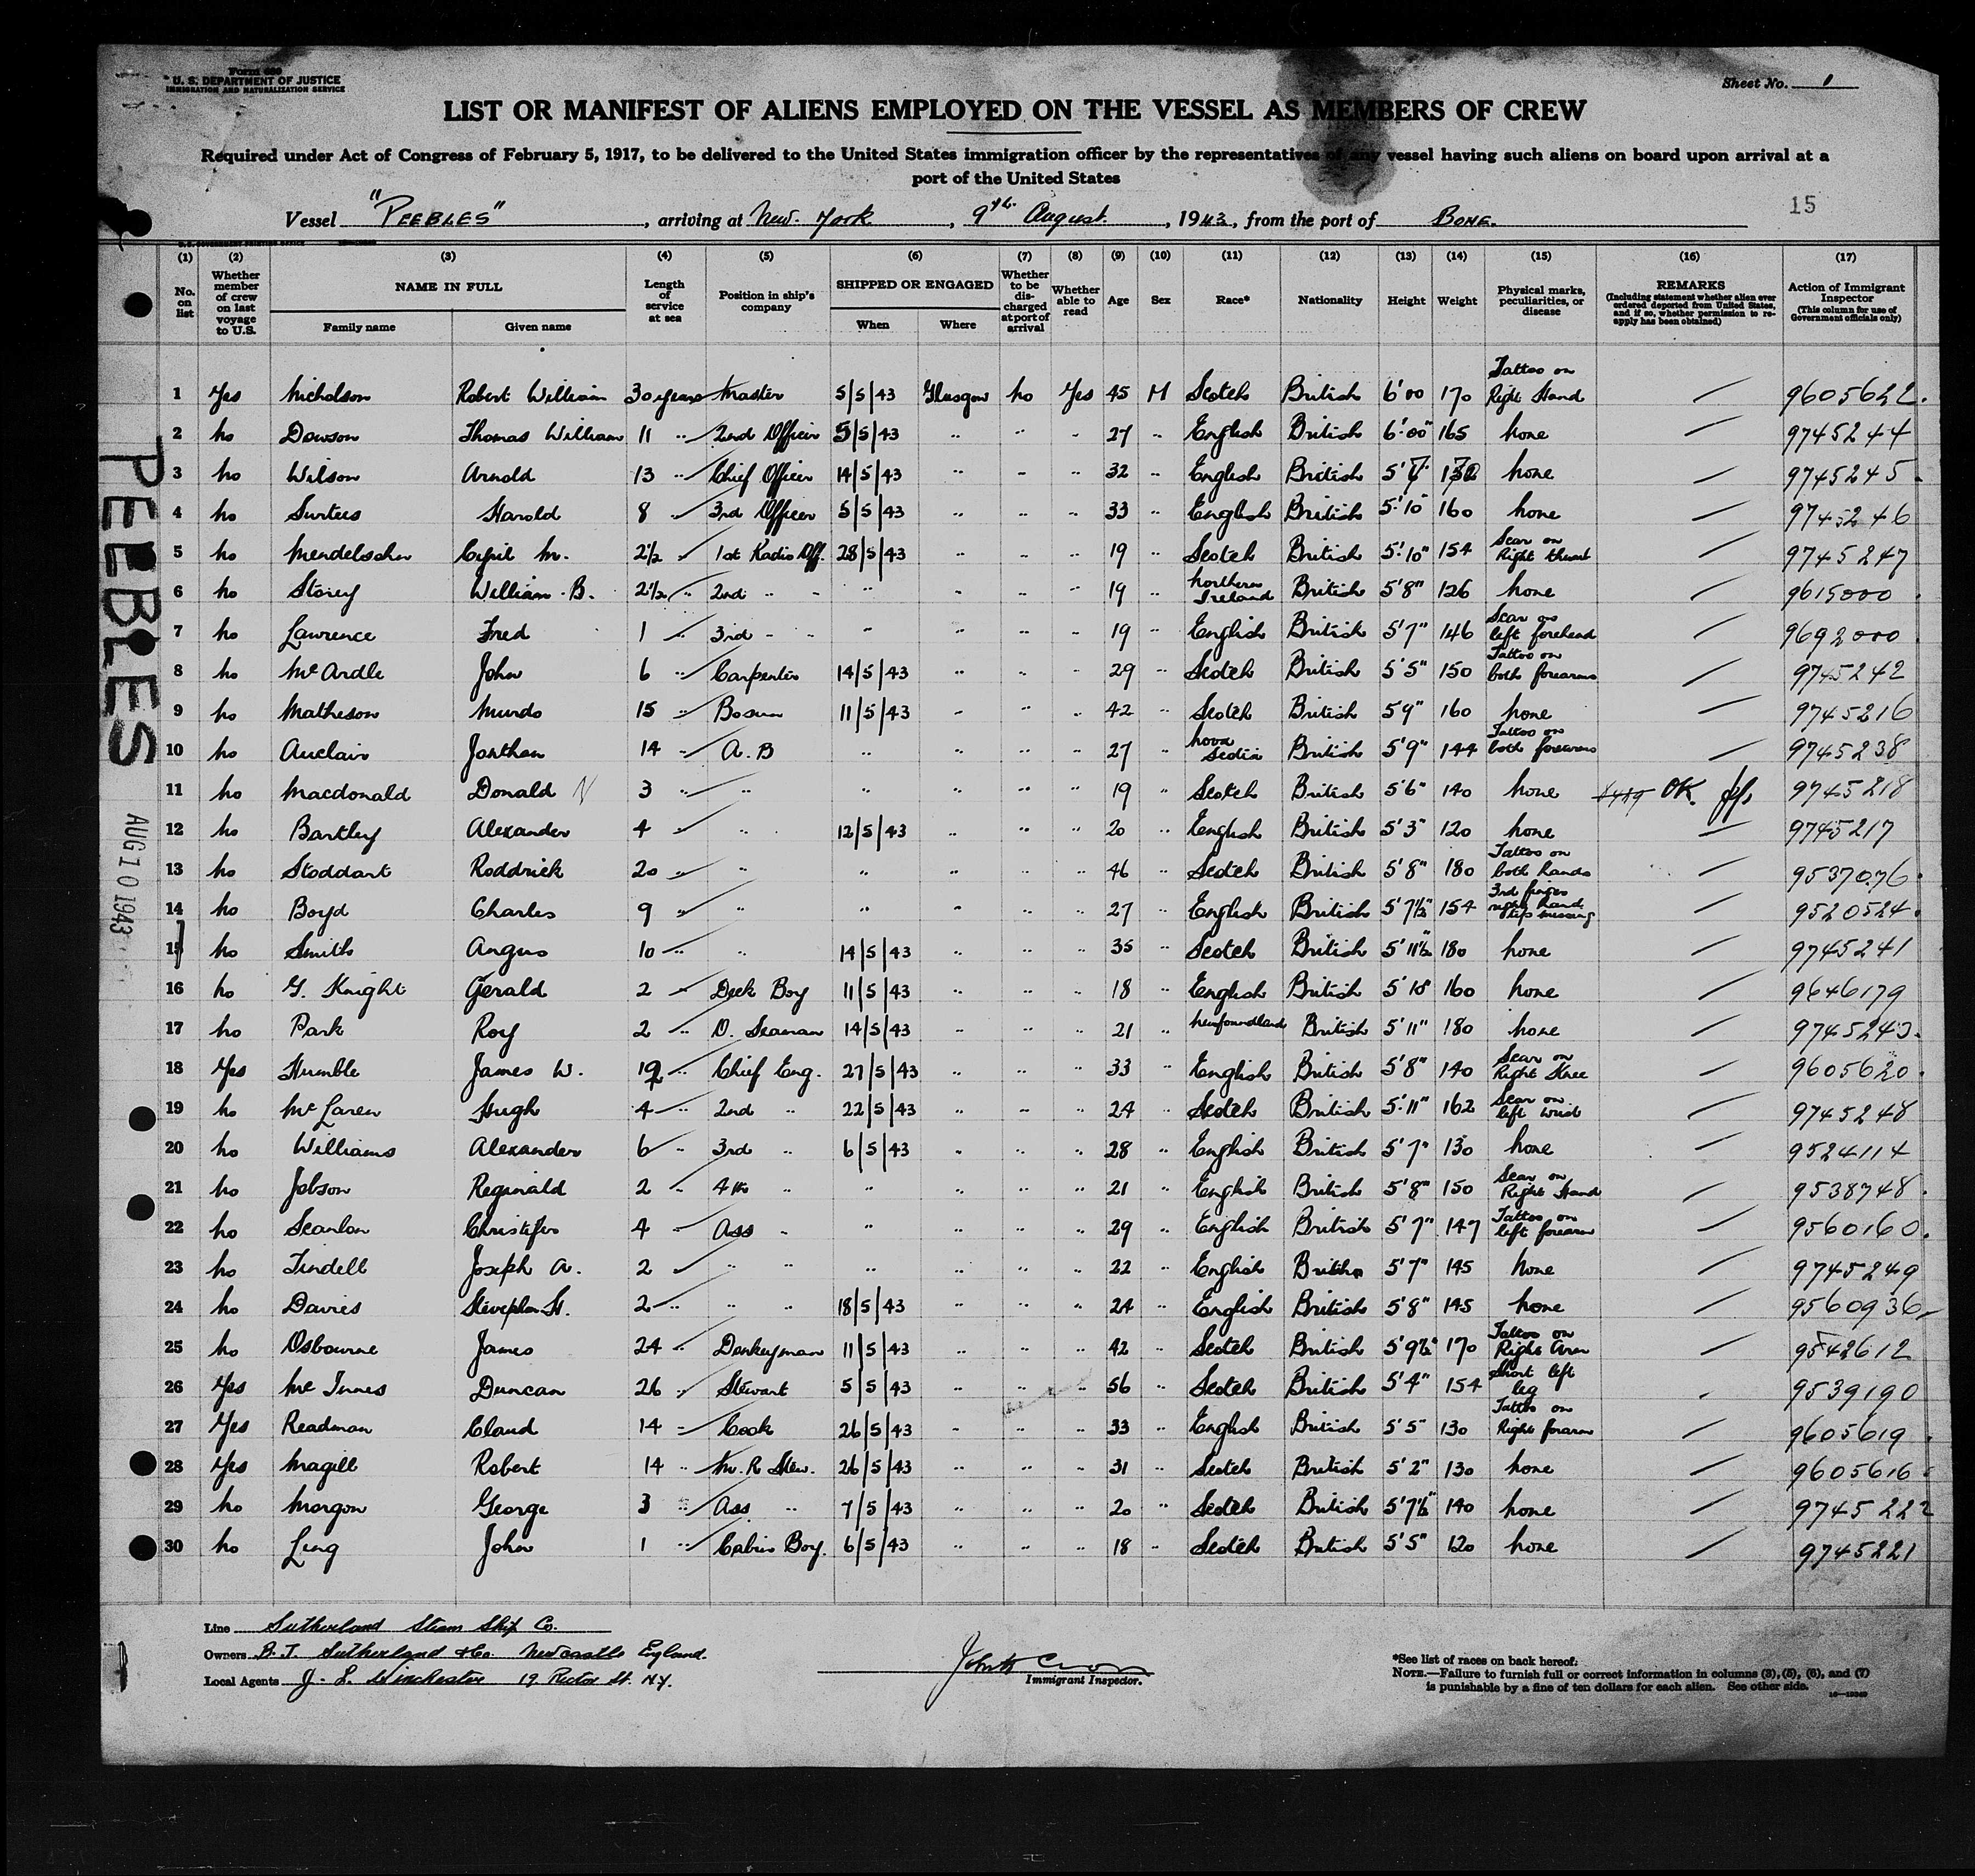 Form 689
U. S. DEPARTMENT OF JUSTICE
IMMIGRATION AND NATURALIZATION SERVICE
Sheet No. 1
LIST OR MANIFEST OF ALIENS EMPLOYED ON THE VESSEL AS MEMBERS OF CREW
Required under Act of Congress of February 5, 1917, to be delivered to the United States immigration officer by the representatives of any vessel having such aliens on board upon arrival at a
port of the United States
15
Vessel "PEEBLES", arriving at New. York, 9th August., 1943, from the port of BONE.
(1) (2) (3) (4) (5) (6) (7) (8) (9) (10) (11) (12) (13) (14) (15) (16) (17)
No. on list
Whether member of crew on last voyage to U.S.
NAME IN FULL
Family name
Given name
Length of service at sea
Position in ship's company
SHIPPED OR ENGAGED
When
Where
Whether to be discharged at port of arrival
Whether able to read
Age
Sex
Race*
Nationality
Height
Weight
Physical marks, peculiarities, or disease
REMARKS
(Including statement whether alien ever ordered deported from United States, and if so, whether permission to re-apply has been obtained)
Action of Immigrant Inspector
(This column for use of Government officials only)
1 Yes Nicholson Robert William 30 years Master 5/5/43 Glasgow No Yes 45 M Scotch British 6'00 170 Tattoo on Right Hand 9605622.
2 No Dowson Thomas William 11 " 2nd Officer 5/5/43 " " " 27 " English British 6'00" 165 None 9745244
3 No Wilson Arnold 13 " Chief Officer 14/5/43 " " " 32 " English British 5'7" None 9745245.
4 No Surtees Harold 8 " 3rd Officer 5/5/43 " " " 33 " English British 5'10" 160 None 9745246
5 No Mendelssohn Cyril M. 2½ " 1st Radio Off. 28/5/43 " " " 19 " Scotch British 5'10" 154 Scar on Right 9745247
6 No Storey William B. 2½ " 2nd " " " " " " 19 " Northern Ireland British 5'8" 126 None 9615000
7 No Lawrence Fred 1 " 3rd " " " " " " 19 " English British 5'7" 146 Scar on left forehead 9692000
8 No McArdle John 6 " Carpenter 14/5/43 " " " 29 " Scotch British 5'5" 150 Tattoo on both forearms 9745242
9 No Matheson Murdo 15 " Bosun 11/5/43 " " " 42 " Scotch British 5'9" 160 None 9745216
10 No Auclair Jonthan 14 " A.B " " " " 27 " Nova Scotia British 5'9" 144 Tattoo on both forearms 9745238
11 No Macdonald Donald N 3 " " " " " " 19 " Scotch British 5'6" 140 None OK. 9745218
12 No Bartley Alexander 4 " " 12/5/43 " " " 20 " English British 5'3" 120 None 9745217
13 No Stoddart Roddrick 20 " " " " " " 46 " Scotch British 5'8" 180 Tattoo on both hands 9537076.
14 No Boyd Charles 9 " " " " " " 27 " English British 5'7½ 154 3rd finger right hand tip missing 9520524.
15 No Smith Angus 10 " " 14/5/43 " " " 35 " Scotch British 5'11½ 180 None 9745241
16 No G. Knight Gerald 2 " Deck Boy 11/5/43 " " " 18 " English British 5'10" 160 None 9646179
17 No Park Roy 2 " O. Seaman 14/5/43 " " " 21 " Newfoundland British 5'11" 180 None 9745243.
18 Yes Humble James W. 19 " Chief Eng. 27/5/43 " " " 33 " English British 5'8" 140 Scar on Right Knee 9605620.
19 No McLaren Hugh 4 " 2nd " 22/5/43 " " " 24 " Scotch British 5'11" 162 Scar on left wrist 9745248
20 No Williams Alexander 6 " 3rd " 6/5/43 " " " 28 " English British 5'7" 130 None 9524114
21 No Jobson Reginald 2 " 4th " " " " " 21 " English British 5'8" 150 Scar on Right Hand 9538748.
22 No Scanlon Christifer 4 " Ass " " " " " 29 " English British 5'7" 147 Tattoo on left forearm 9560160.
23 No Tindell Joseph A. 2 " " " " " " " 22 " English British 5'7" 145 None 9745249
24 No Davies Stevephen H. 2 " " " 18/5/43 " " " 24 " English British 5'8" 145 None 9560936
25 No Osbourne James 24 " Donkeyman 11/5/43 " " " 42 " Scotch British 5'9½" 170 Tattoo on Right Arm 9542612
26 Yes McInnes Duncan 26 " Stewart 5/5/43 " " " 56 " Scotch British 5'4" 154 Short left leg 9539190
27 Yes Readman Claud 14 " Cook 26/5/43 " " " 33 " English British 5'5" 130 Tattoo on Right forarm 9605619.
28 Yes Magill Robert 14 " M.R Stew. 26/5/43 " " " 31 " Scotch British 5'2" 130 None 9605616
29 No Morgon George 3 " Ass " 7/5/43 " " " 20 " Scotch British 5'7½" 140 None 9745222
30 No Ling John 1 " Cabin Boy. 6/5/43 " " " 18 " Scotch British 5'5" 120 None 9745221
PEEBLES
AUG 10 1943
Line Sutherland Steam Ship Co.
Owners B. J. Sutherland & Co. Newcastle England.
Local Agents J. L. Winchester 19 Rector St. N.Y.
Immigrant Inspector.
*See list of races on back hereof.
NOTE.—Failure to furnish full or correct information in columns (3), (5), (6), and (7)
is punishable by a fine of ten dollars for each alien. See other side.